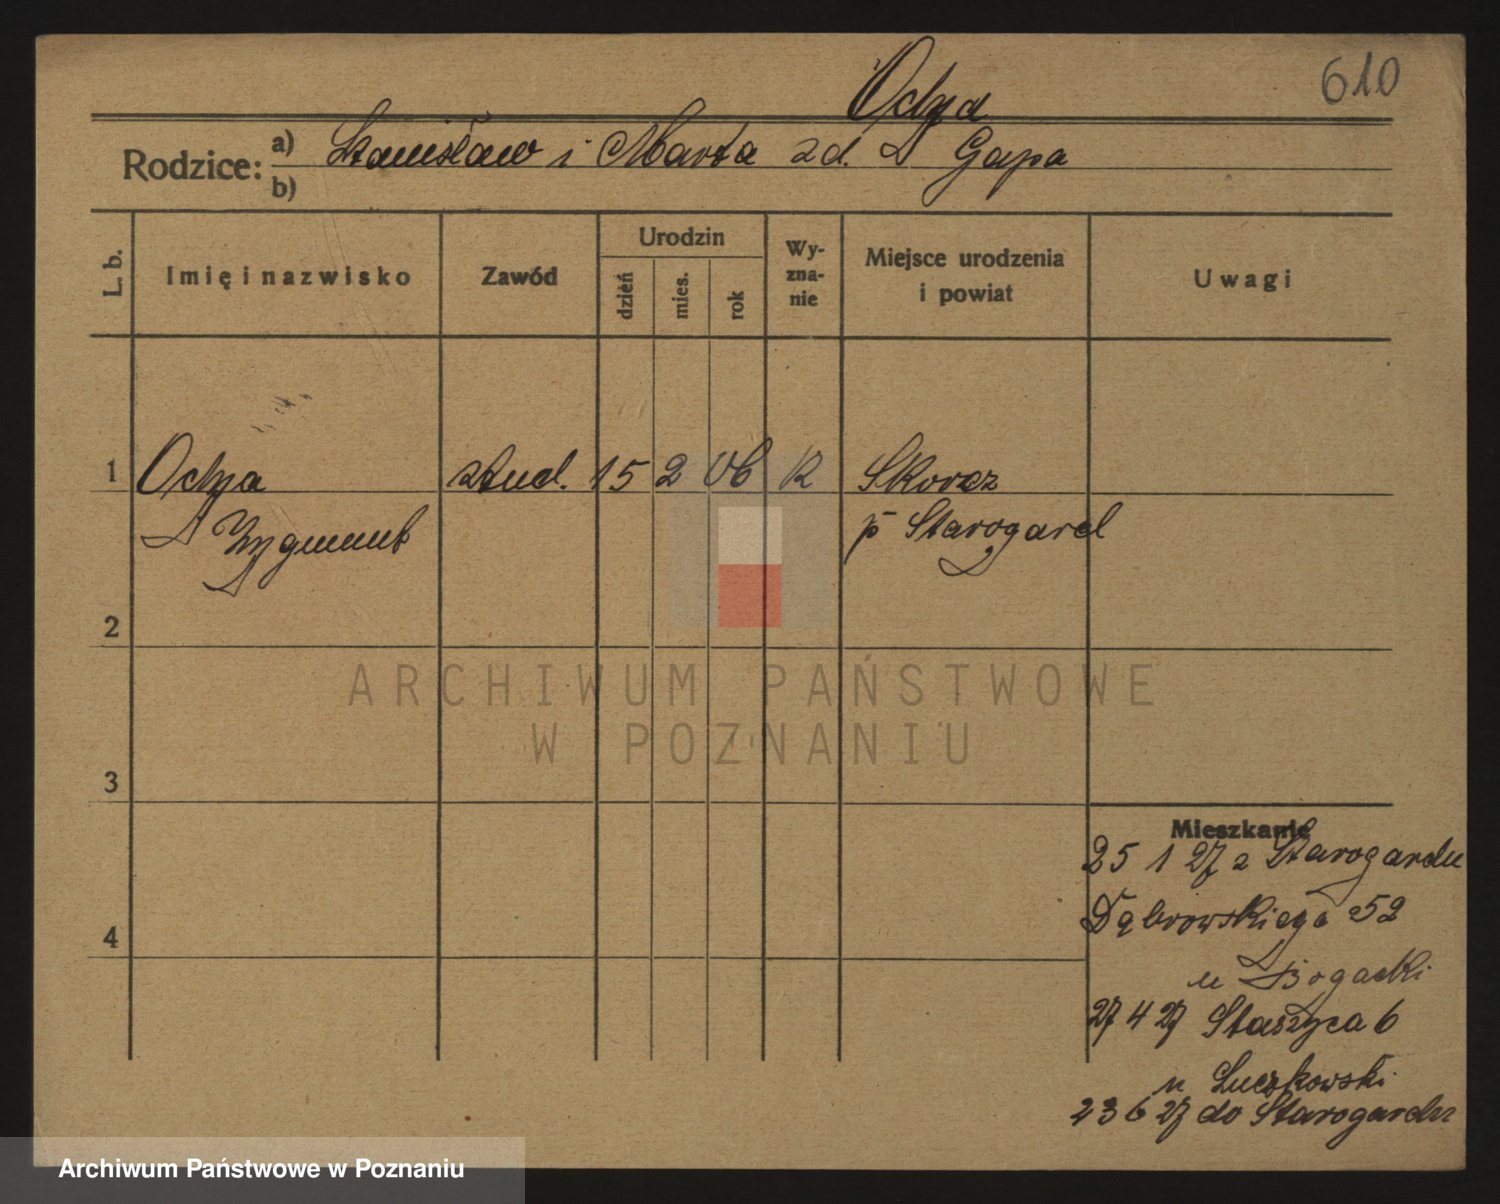 Odya 610
Rodzice: a) Stanisław i Marta zd. Gapa
b)
L. b. Imię i nazwisko Zawód Urodzin dzień mies. rok Wyznanie Miejsce urodzenia i powiat Uwagi
1 Odya stud. 15 2 06 R Skorcz
Zygmunt p Starogard
2
3
Mieszkanie
25 1 27 z Starogardu
Dąbrowskiego 52
4
u Bogacki
27 4 27 Staszyca 6
u Luczkowski
23 6 27 do Starogardu
ARCHIWUM PAŃSTWOWE
W POZNANIU
Archiwum Państwowe w Poznaniu